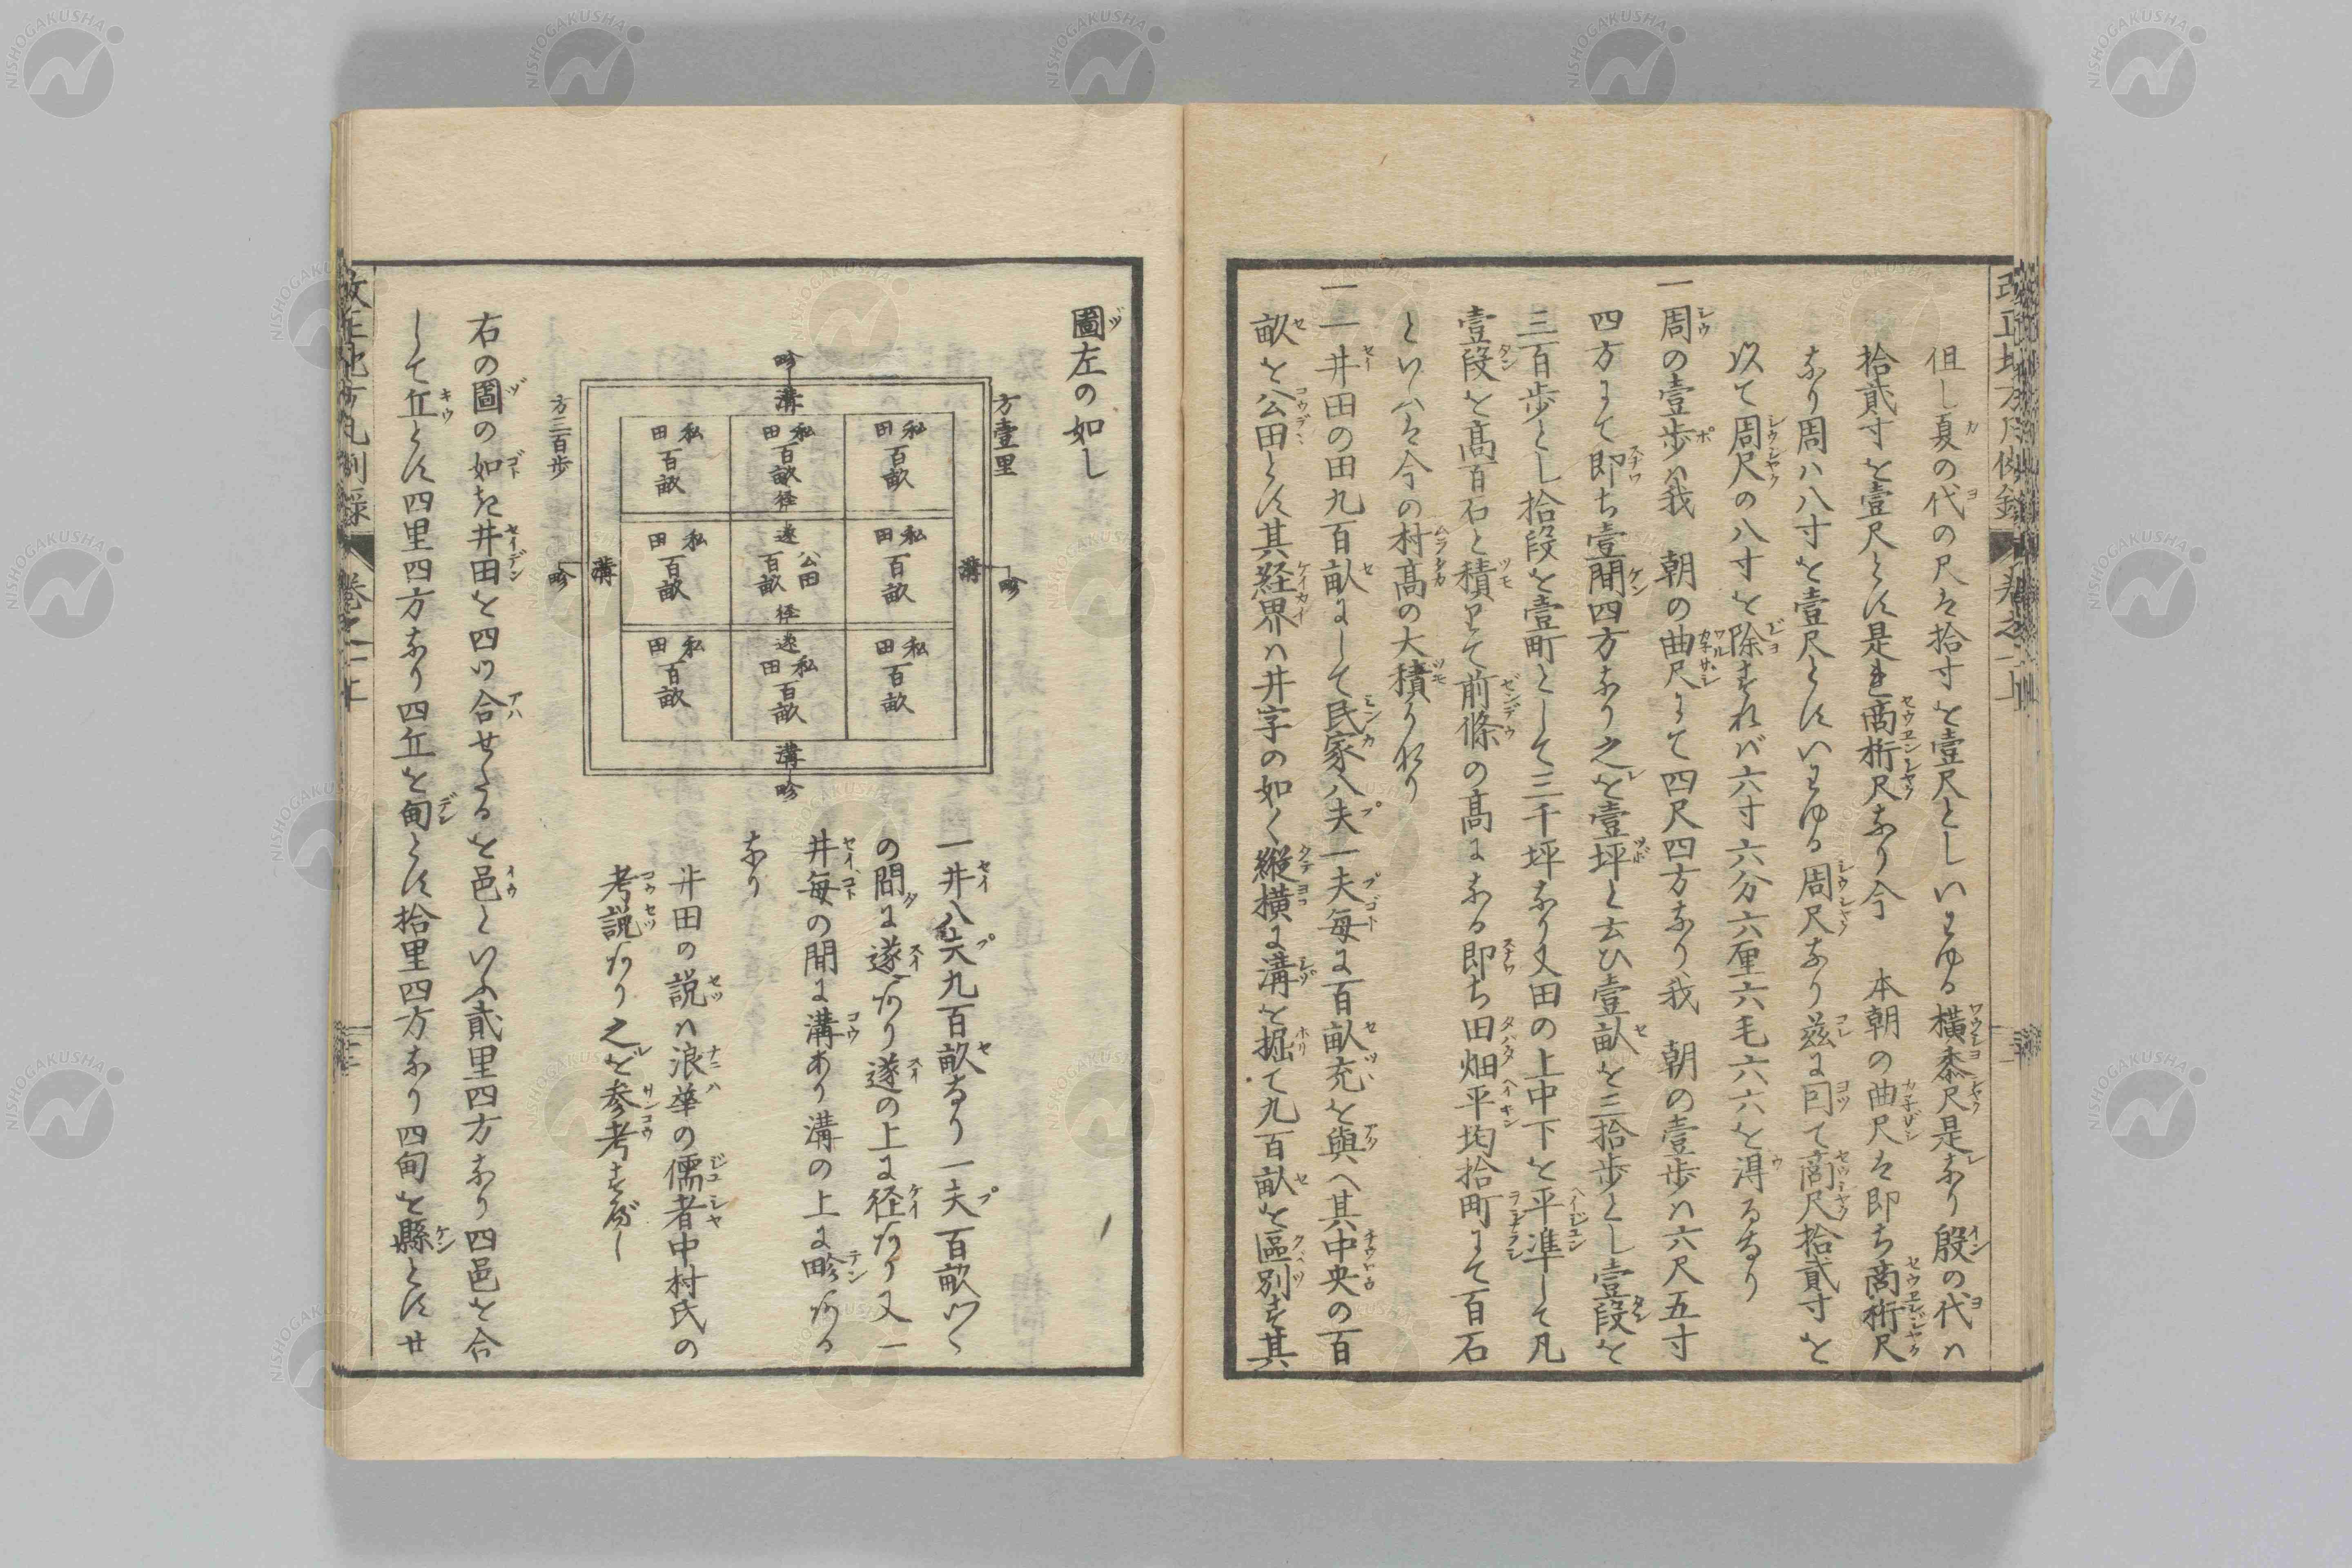 但し夏の代の尺は拾寸を壹尺としいわゆる横黍尺是なり殷の代ハ
拾貳寸を壹尺とす是を商桁尺なり今 本朝の曲尺は即ち商桁尺
なり周ハ八寸を壹尺とすいわゆる周尺なり茲に因て商尺拾貳寸を
以て周尺の八寸を除すれバ六寸六分六厘六毛六六を得るなり
一周の壹歩ハ我 朝の曲尺にて四尺四方なり我 朝の壹歩ハ六尺五寸
四方にて即ち壹間四方なり之を壹坪と云ひ壹畝を三拾歩とし壹段を
三百歩とし拾段を壹町として三千坪なり又田の上中下を平準して凡
壹段を高百石と積りて前條の高になる即ち田畑平均拾町にて百石
といへは今の村高の大積りなり
一一井田の田九百畝にして民家八夫一夫毎に百畝充を與へ其中央の百
畝を公田とす其経界ハ井字の如く縦横に溝を掘て九百畝を區別す其
圖左の如し
方壹里
畛
溝
私田百畝
私田百畝径
私田百畝
畛
溝
私田百畝
遂公田百畝径
私田百畝
溝
畛
私田百畝
遂私田百畝
私田百畝
溝
畛
方三百歩
一井八夫九百畝なり一夫百畝つゝ
の間に遂あり遂の上に径あり又一
井毎の間に溝あり溝の上に畛ある
なり
井田の説ハ浪華の儒者中村氏の
考説あり之を参考すべし
右の圖の如き井田を四ツ合せたるを邑といふ貳里四方なり四邑を合
して丘とす四里四方なり四丘を甸とす拾里四方なり四甸を縣とす廿
改正地方凡例録 卷之一上